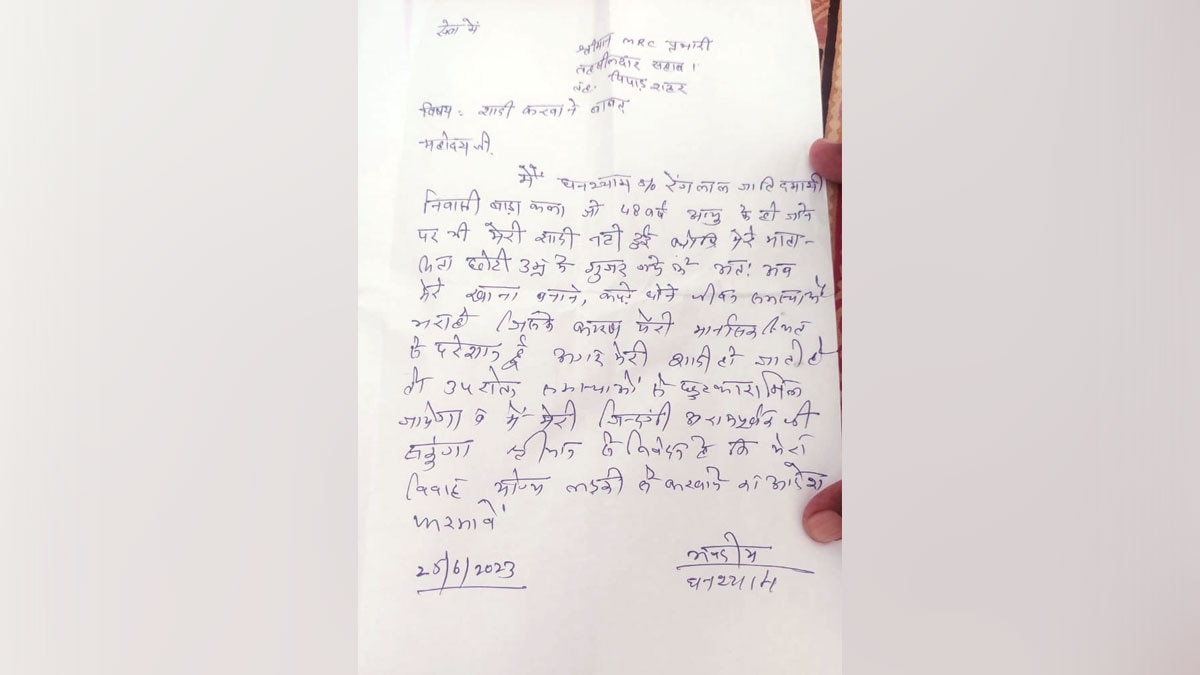 सेवा में
श्रीमान MRC प्रभारी
तहसीलदार साहब।
तह. पिपाड़ शहर
विषय: शादी करवाने बाबत्
महोदय जी.
मैं घनश्याम S/o रेंगलाल जाति दमामी
निवासी बाड़ा कला जो 48 वर्ष आयु के हो जाने
पर भी मेरी शादी नही हुई क्योकि मेरे माता-
पिता छोटी उम्र में गुजर गये थे अतः अब
मेरे खाना बनाने, कपड़े धोने जैसी समस्याओं
जिसके कारण मेरी मानसिक स्थिति
से परेशान हूँ अगर मेरी शादी हो जाती है
तो उपरोक्त समस्याओं से छुटकारा मिल
जायेगा व मैं मेरी जिन्दगी आरामपूर्वक जी
सकुंगा श्रीमान से निवेदन है कि मेरा
विवाह योग्य लड़की से करवाने का आदेश
फरमावें
25/6/2023
भवदीय
घनश्याम